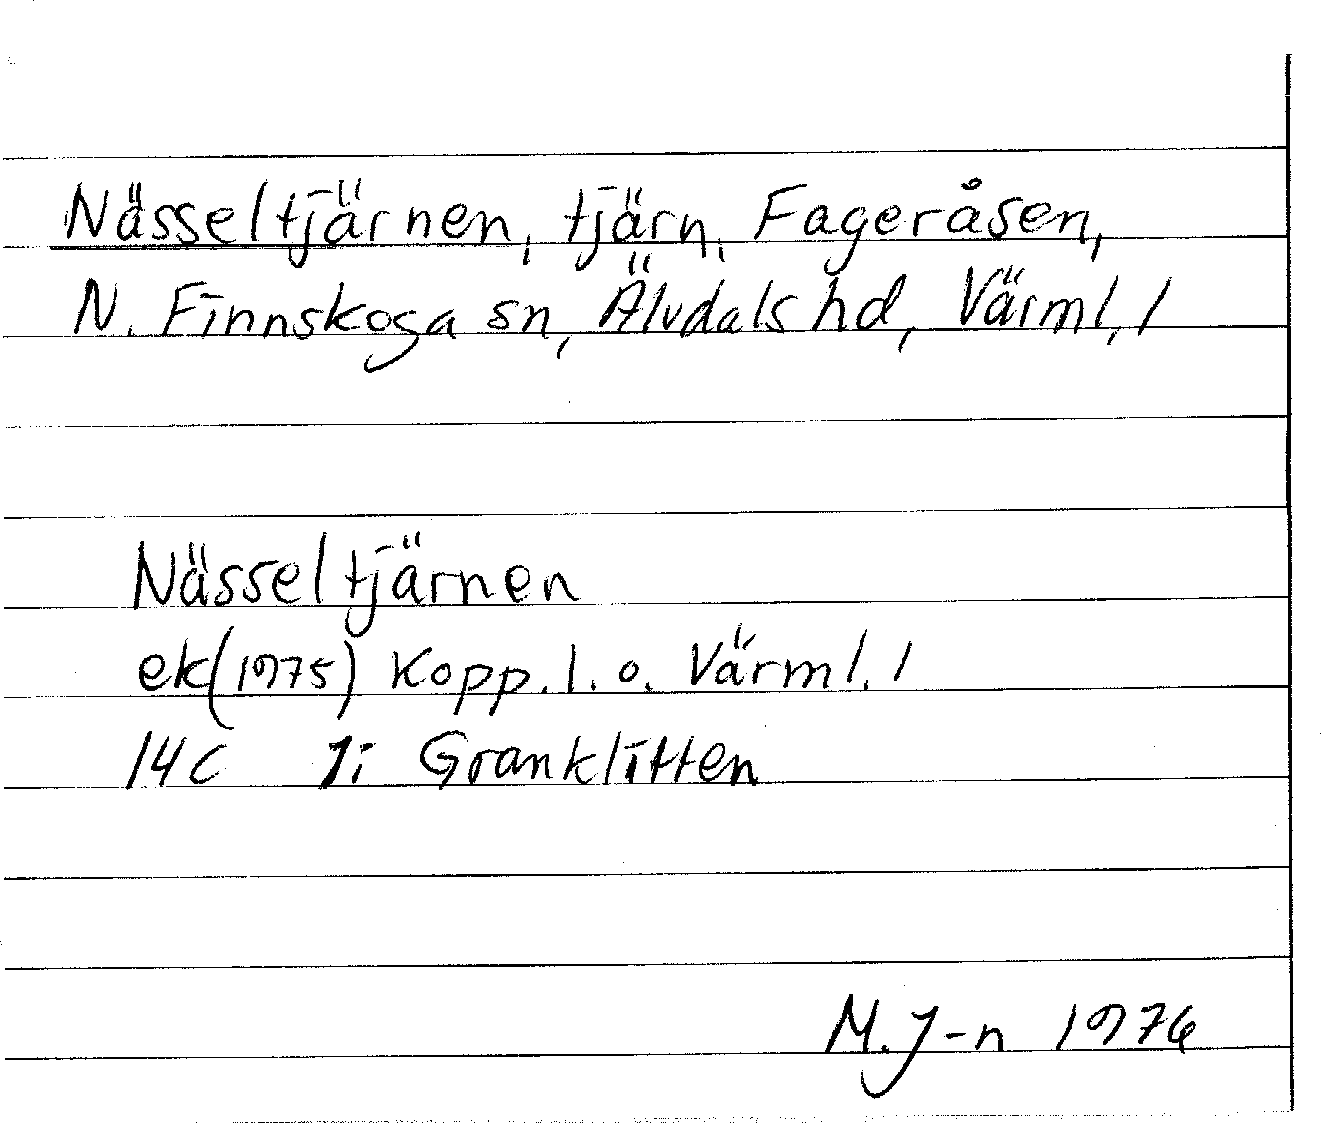 Nässeltjärnen, tjärn, Fageråsen,
N. Finnskoga sn, Älvdals hd, Värml. l
Nässeltjärnen
ek(1975) Kopp. l. o. Värml. l
14C 1i Granklitten
M. J-n 1976